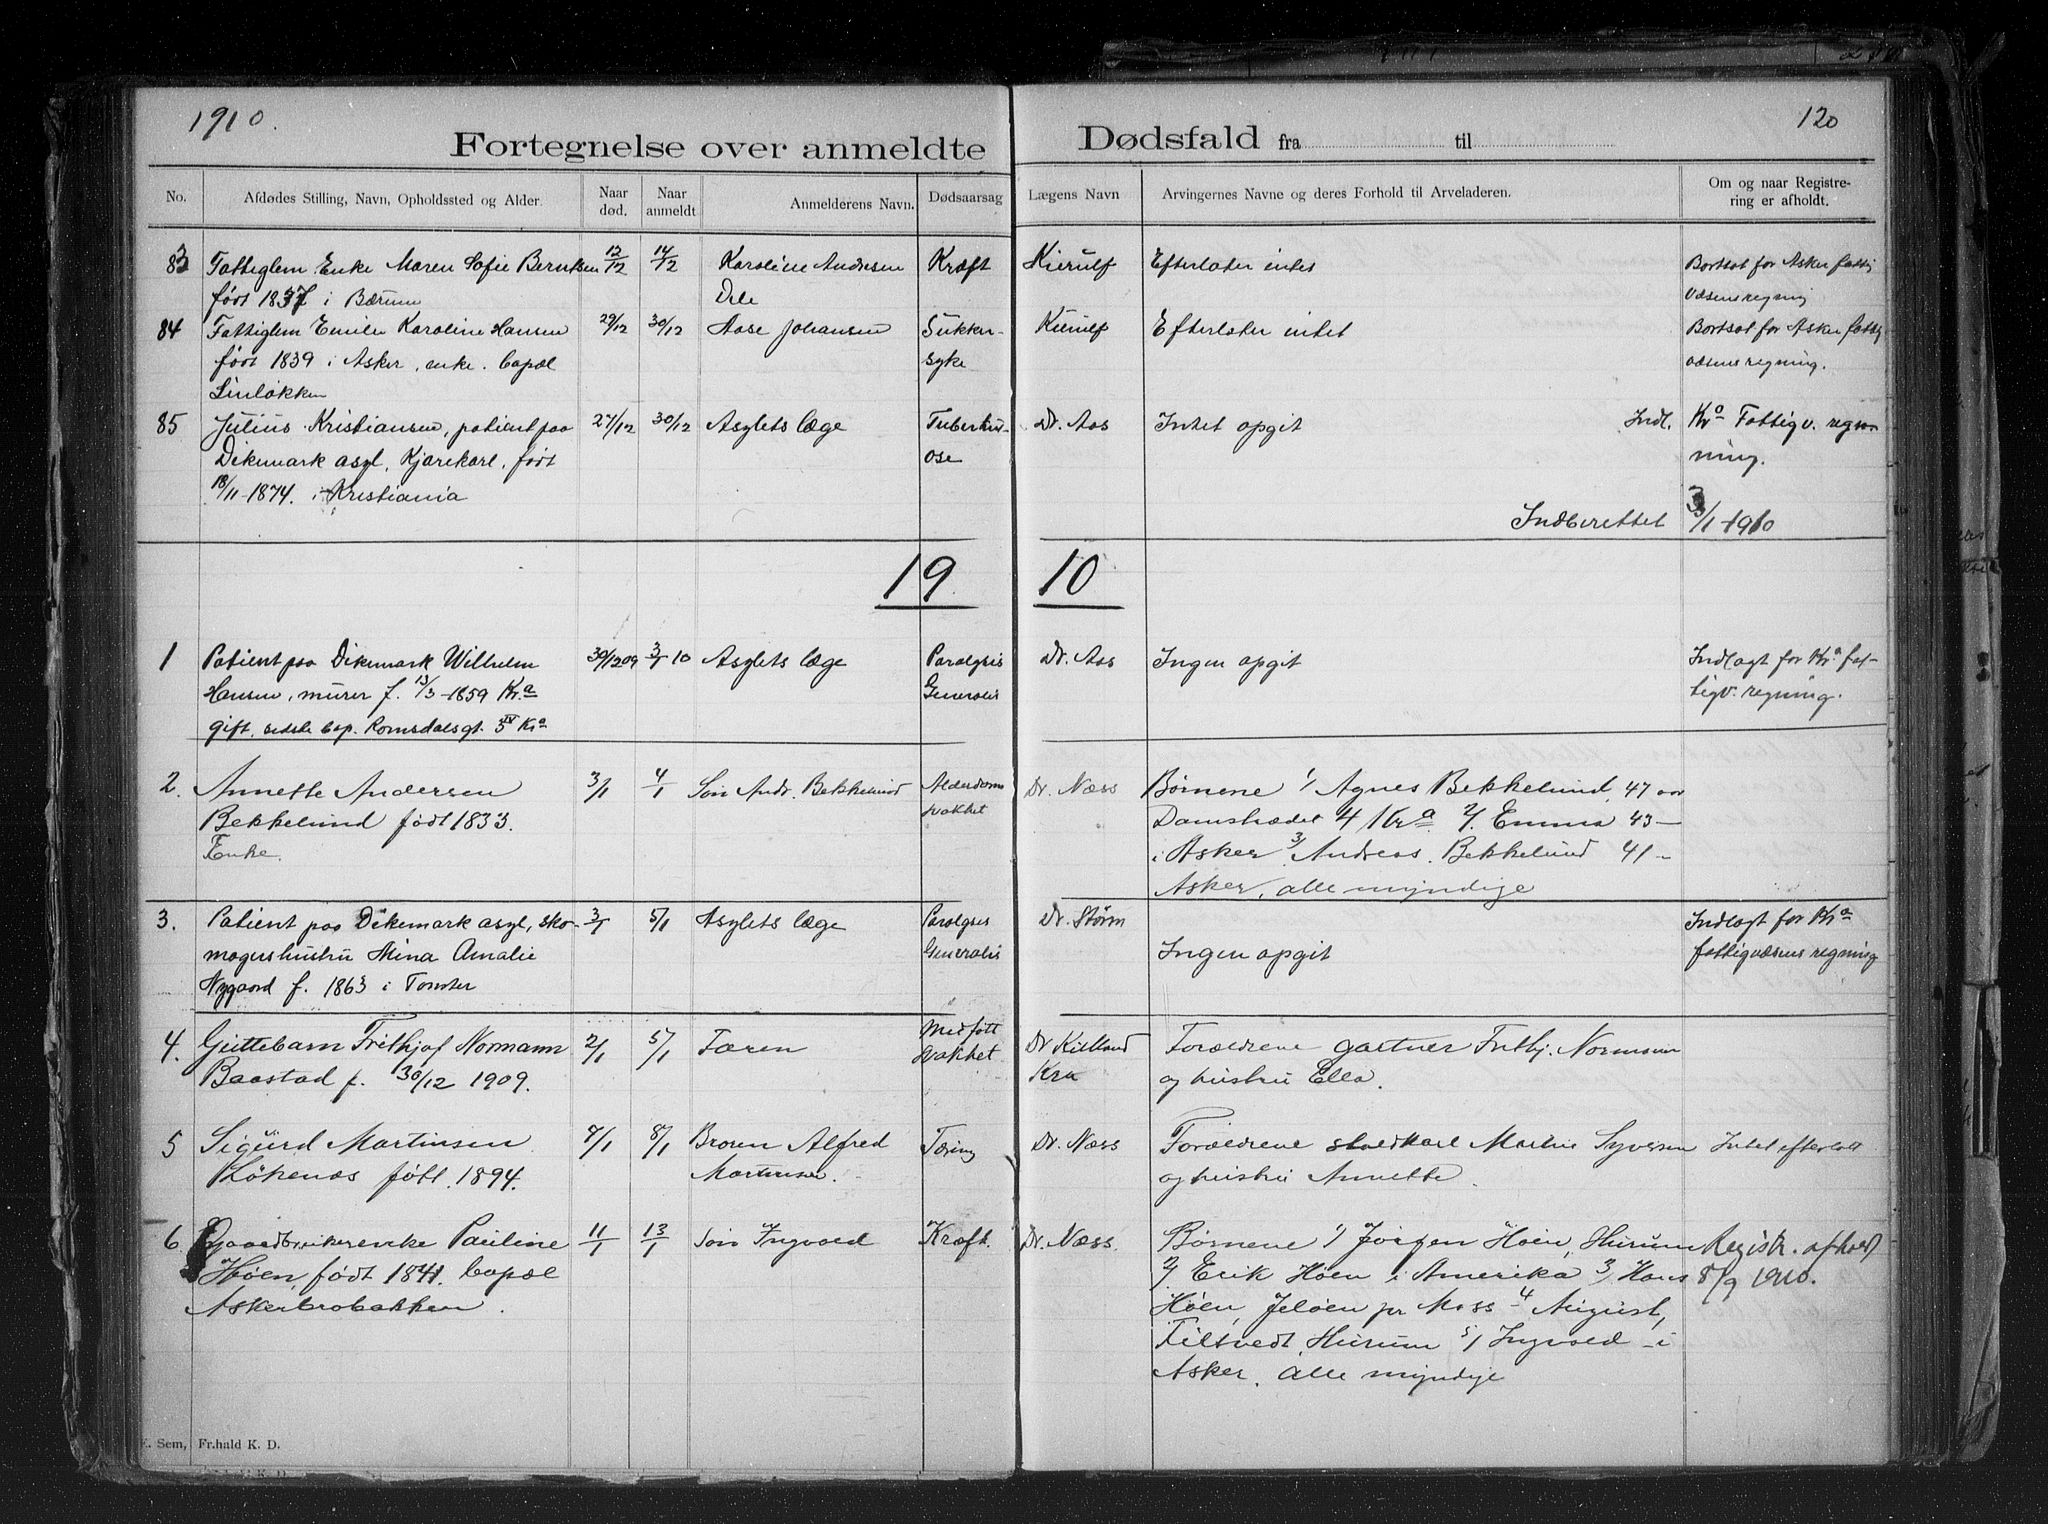 1910.
120
Fortegnelse over anmeldte Dødsfald fra til
No. Afdødes Stilling, Navn, Opholdssted og Alder. Naar død. Naar anmeldt Anmelderens Navn. Dødsaarsag Lægens Navn Arvingernes Navne og deres Forhold til Arveladeren. Om og naar Registrering er afholdt.
83 Fattiglem Enke Maren Sofie Berntsen 12/12 14/12 Karoline Andresen Kræft Kierulf Efterlater intet Bortsat for Asker fattig
født 1837 i Bærum Dele væsens regning
84 Fattiglem Emilie Karoline Hansen 29/12 30/12 Aase Johansen Sukker- Kierulf Efterlater intet Bortsat for Asker fattig
født 1839 i Asker, enke. bopæl syke væsens regning.
Linløkken
85 Julius Kristiansen, patient paa 27/12 30/12 Asylets læge Tuberkul- Dr. Aas Intet opgit Indl. Kra Fattigv. reg-
Dikemark asyl, Kjørekarl, født ose ning.
18/11-1874. i Kristiania
Indberettet 3/1-1910
19 10
1 Patient paa Dikemark Wilhelm 30/12 09 3/1 10 Asylets læge Paralysis Dr. Aas Ingen opgit Indlagt for Kra fat-
Hansen, murer f. 13/3-1859 Kra Generalis tigv. regning.
gift, sidste bop. Romsdalsgt. 3 IV Kra
2. Annette Andersen 3/1 4/1 Søn Andr. Bekkelund Alderdoms Dr. Næss Børnene 1/ Agnes Bekkelund, 47 aar
Bekkelund født 1833. svakhet Damstrædet 4 Kra 2/ Emma 43 —
Enke. i Asker 3/ Andreas Bekkelund 41 —
Asker, alle myndige
3. Patient paa Dikemark asyl, sko- 3/1 5/1 Asylets læge Paralyses Dr. Størm Indlagt for Kra
magerhustru Mina Amalie Generalis Ingen opgit fattigvæsens regning
Nygaard f. 1863 i Tomter
4. Guttebarn Frithjof Normann 2/1 5/1 Faren Medfött Dr Kielland Forældrene gartner Frithj. Normann
Baastad f. 30/12 1909. svakhet Kra og hustru Ella.
5 Sigurd Martinsen 7/1 8/1 Broren Alfred Tæring Dr. Næss Forældrene Martin Syversen Intet efterlatt
Løkenæs født 1894. Martinsen. og hustru Annette.
6. Gaardbrukerenke Pauline 11/1 13/1 Søn Ingvald Kræft. Dr. Næss. Børnene 1/ Jørgen Høen, Hurum Registr. afholdt
Høen, født 1841. bopæl 2/ Erik Høen i Amerika 3/ Hans 8/9 1910.
Askerbrobakken. Høen, Jeløen pr Moss - 4 August,
Tiltvedt, Hurum 5/ Ingvald - i
Asker. alle myndige
Sem, Fr.hald K. D.